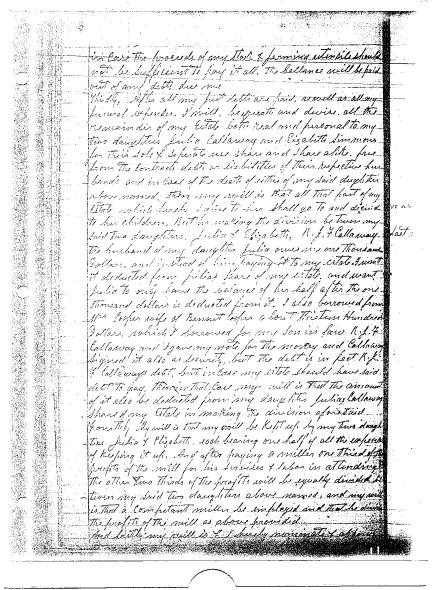 in Case the proceeds of my Stock & farming utensils should
not be sufficient to pay it all, the ballance will be paid
out of any debts due me
Thirdly, After all my just debts are paid, as well as all my
funeral expenses. I will, bequeath and devise all the
remainder of my Estate both real and personal to my
two daughters Julia Callaway and Elizabeth Simmons
for their Sole & seperate use Share and Share alike, free
from the contracts debts or liabilities of their respective hus
bands and in Case of the death of either of my said daughters
above named, then my will is that all that part of my
Estate which I give to her shall go to and
to her children. But in making the division between my
said two daughters, Julia & Elizabeth, R. J. F Callaway
the husband of my daughter Julia owes me one thousand
Dollars, and instead of him paying it to my estate I want
it deducted from Julias share of my estate, and want
Julia to only have the balance of her half after the one
thousand dollars is deducted from it. I also borrowed from
Mrs Cofer wife of Bennett Cofer about Thirteen Hundred
Dollars, which I borrowed for my Son in law R. J. F.
Callaway and I gave my note for the money and Callaway
Signed it also as Security, but the debt is in fact R. J.
F Callaways debt, but in case my estate should have said
debt to pay, then in that Case my will is that the amount
of it also be deducted from my daughter Julias Callaway
share of my Estate in making the division aforesaid.
Fourthly My will is that my mill be Kept up by my two daugh
ters Julia & Elizabeth, each bearing one half of all the expenses
of keeping it up. And after paying a miller one third of the
profits of the mill for his services & labor in attending
the other two thirds of the profits will be equally divided be
tween my said two daughters above named, and my will
is that a Competant miller be employed and that he
the profits of the mill as above provided.
And lastly my will is & I hereby nominate &